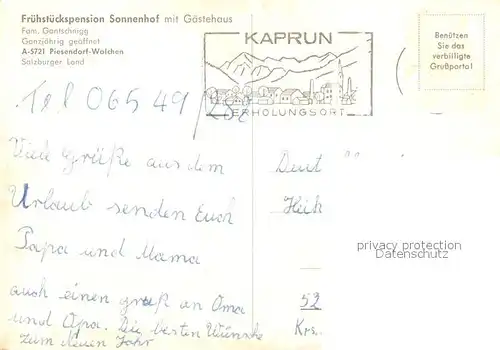 Frühstückspension Sonnenhof mit Gästehaus
Fam. Gantschnigg
Ganzjährig geöffnet
A-5721 Piesendorf-Walchen
Salzburger Land
KAPRUN
ERHOLUNGSORT
Benützen
Sie das
verbilligte
Grußporto!
Tel 06549/
Viele Grüße aus dem
Urlaub senden Euch
Papa und Mama
auch einen gruß an Oma
und Opa. Die besten Wünsche
zum Neuen Jahr
52
Krs.
privacy protection
Datenschutz